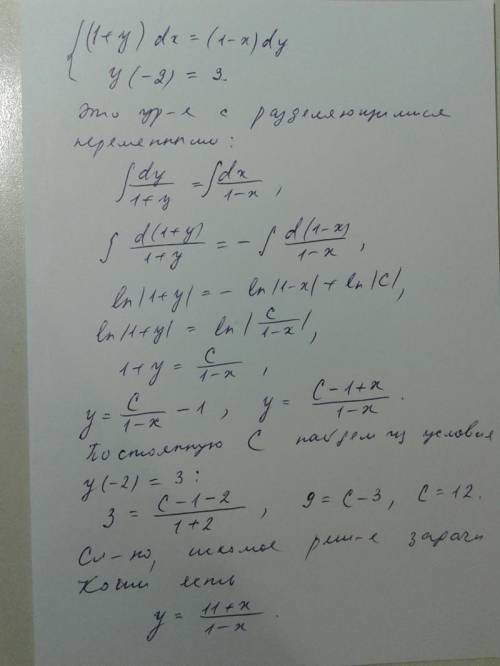 { (1+y) dx = (1-x) dy
y(-2) = 3.
Это ур-е с разделяющимися
переменными:
∫ dy/(1+y) = ∫ dx/(1-x) ,
∫ d(1+y)/(1+y) = - ∫ d(1-x)/(1-x) ,
ln|1+y| = - ln|1-x| + ln|C|,
ln|1+y| = ln| C/(1-x) |,
1+y = C/(1-x) ,
y = C/(1-x) - 1 , y = (C-1+x)/(1-x) .
Постоянную C найдем из условия
y(-2) = 3:
3 = (C-1-2)/(1+2) , 9 = C-3, C = 12.
Сл-но, искомое реш-е задачи
Коши есть
y = (11+x)/(1-x) .